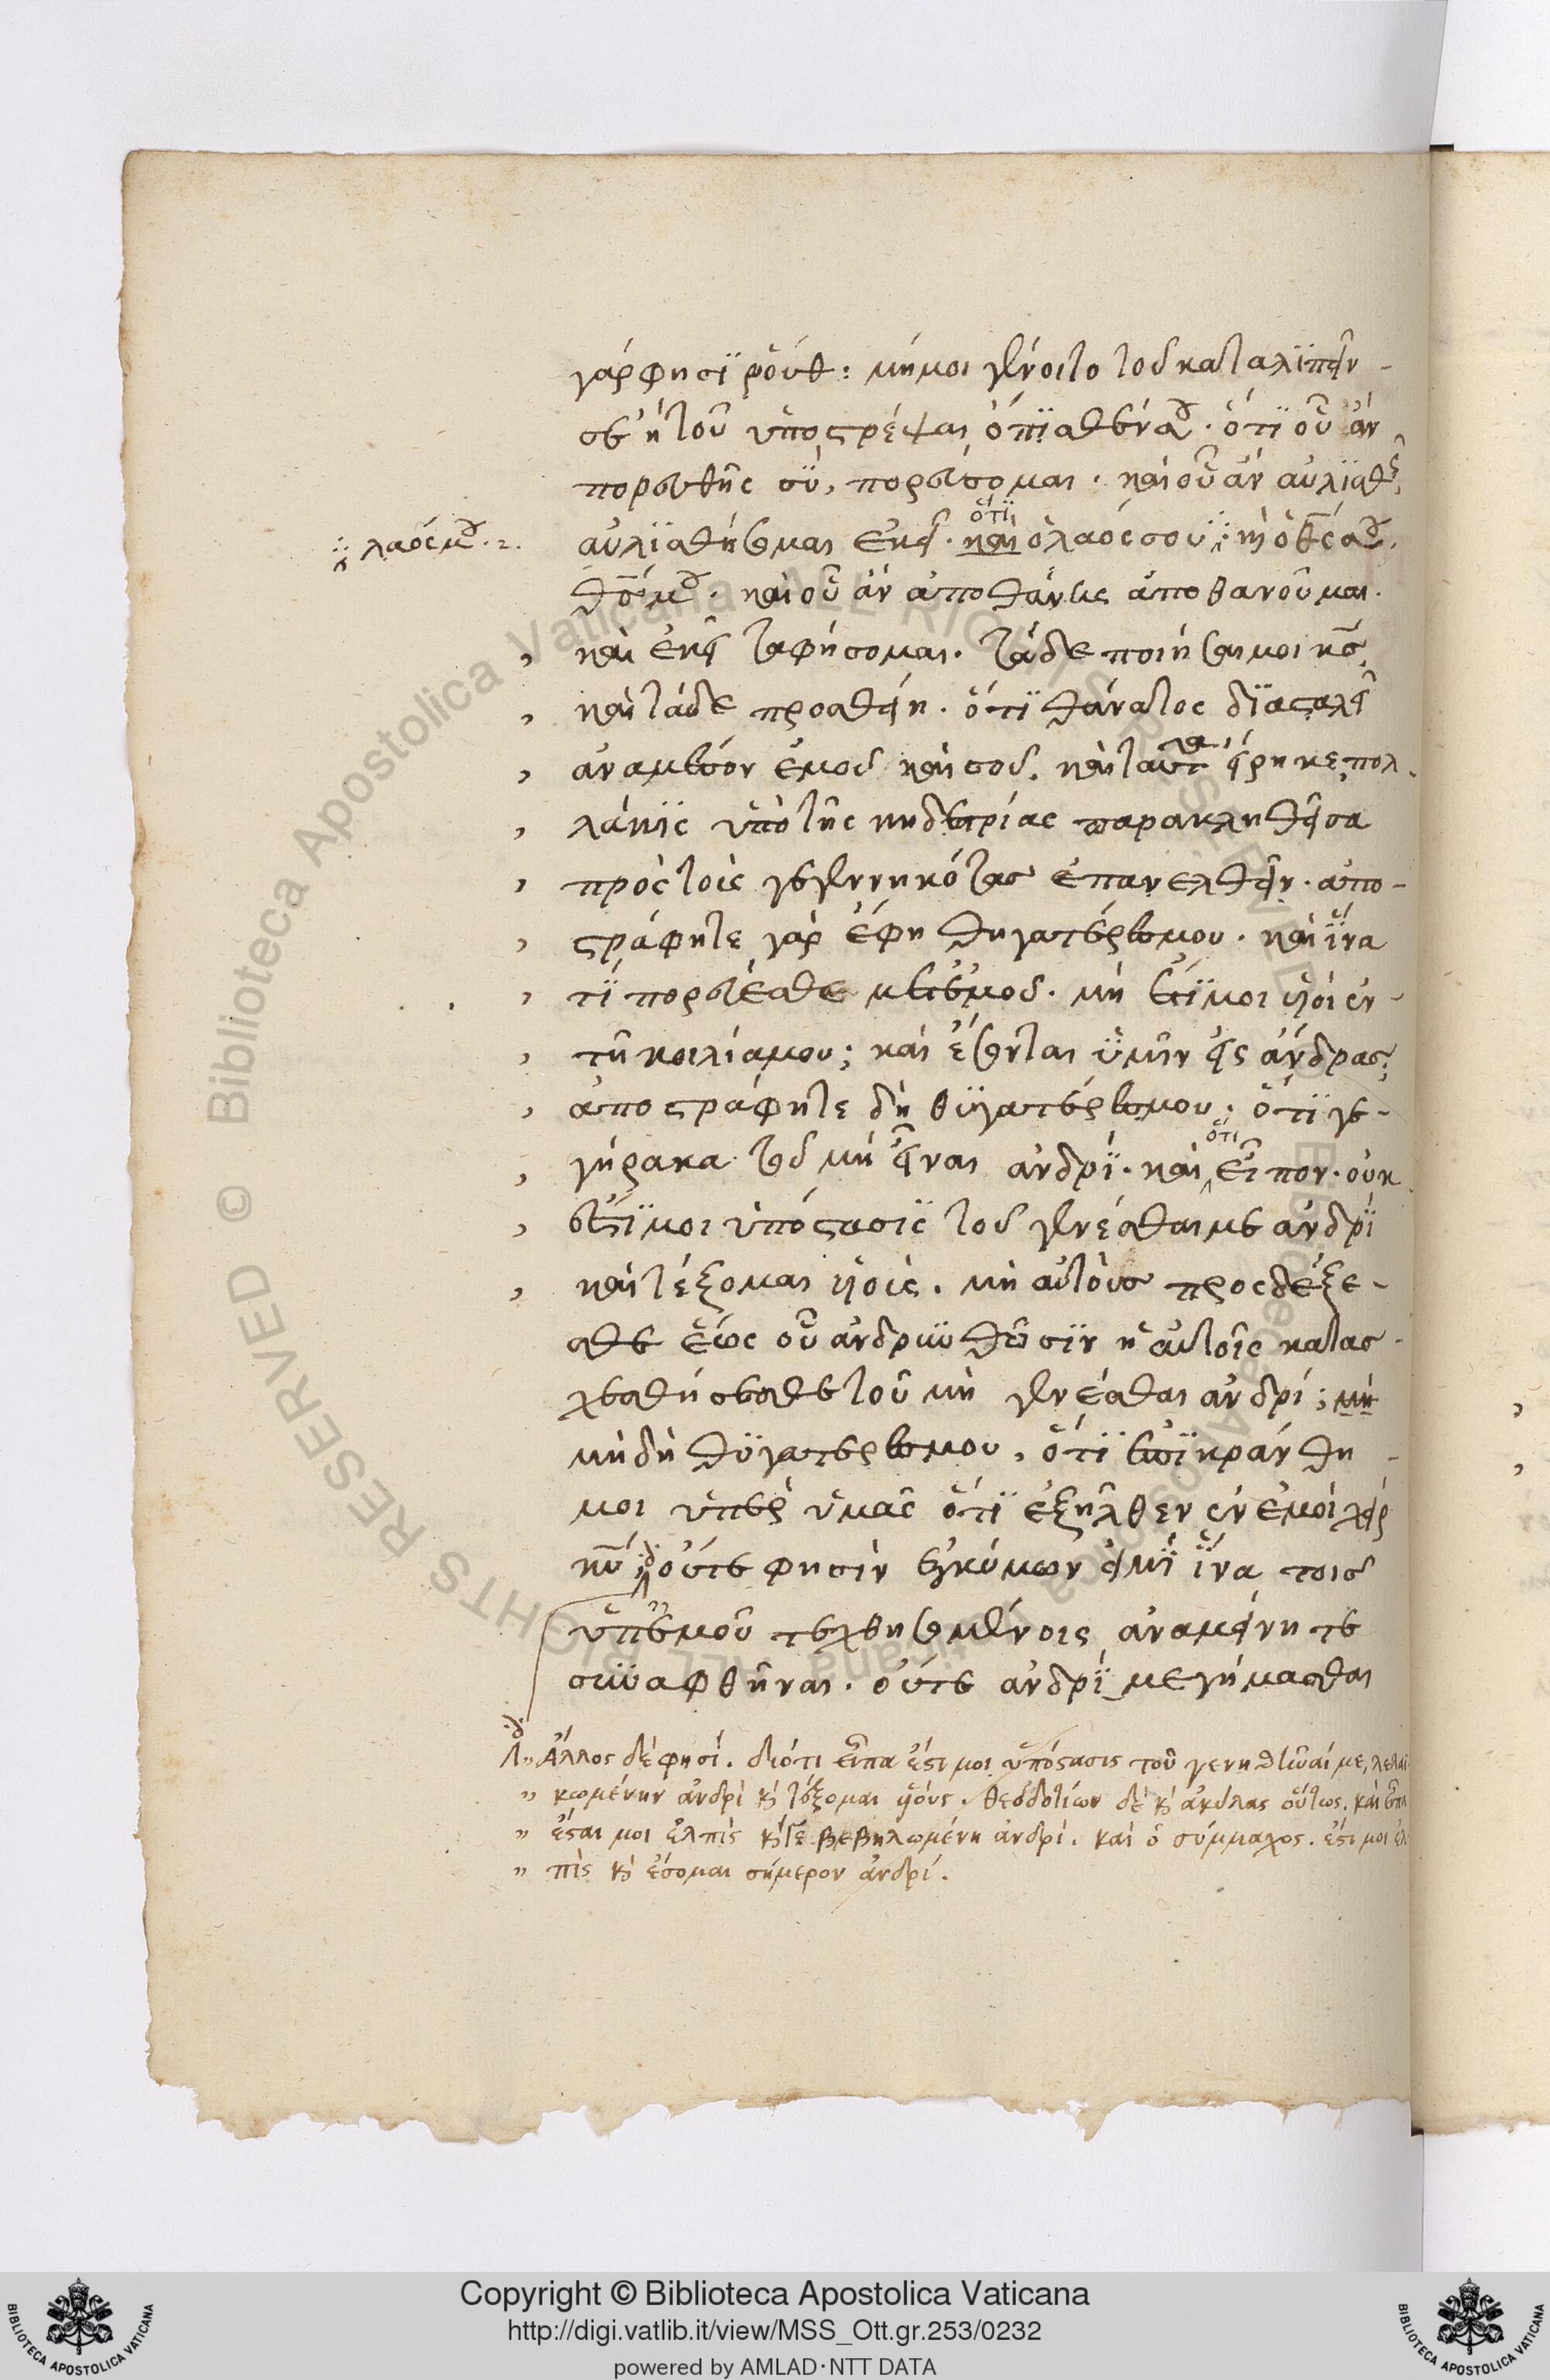 γάρ φησϊ ῥούθ: μή μοι γένοιτο τοῦ καταλϊπεῖν -
σε ἢ τοῦ ὑποστρέψαι ὄπϊσθέν σου. ὅτϊ οὗ ἂν
πορευθῇς σὺ, πορεύσομαι. καὶ οὗ ἂν αὐλϊσθῇς,
ὅτι
αὐλϊσθήσομαι ἐκεῖ. καὶ ὁ λαός σου ⁘ καὶ ὁ θς σου,
⁘ λαός μου.
θς μου. καὶ οὗ ἂν ἀποθάνῃς ἀποθανοῦμαι.
, καὶ ἐκεῖ ταφήσομαι. τάδε ποιήσαι μοι κς,
, καὶ τάδε προσθείη. ὅτϊ θάνατος δϊαστελεῖ
, αναμέσον ἐμοῦ καὶ σοῦ. καὶ ταῦτα εἴρηκε, πολ-
, λάκϊς ὑπὸ τῆς κηδεστρίας παρακληθεῖσα
, πρὸς τοὺς γεγεννηκότας ἐπανελθεῖν. ἀπο-
, στράφητε γὰρ ἔφη θυγατέρες μου. καὶ ἵνα
, τϊ πορεύεσθε μετ' ἐμοῦ. μὴ ἔτϊ μοι υἱοὶ ἐν
, τῇ κοιλίᾳ μου; καὶ ἔσονται ὑμῖν εἰς ἄνδρας;
, ἀποστράφητε δὴ θϋγατέρες μου. ὅτϊ γε-
ὅτι
, γήρακα τοῦ μὴ εἶναι ἀνδρϊ. καὶ εἶπον. οὐκ
, ἔστϊ μοι ὑπόστασϊς τοῦ γενέσθαι με ἀνδρϊ
, καὶ τέξομαι υἱούς. μὴ αὐτοὺς προσδέξε-
σθε ἕως οὗ ἀνδρωθῶσϊν ἢ αὐτοῖς κατασ-
χεθήσεσθε τοῦ μὴ γενέσθαι ἀνδρί; μὴ
μὴ δὴ θϋγατερες μου, ὅτϊ ἐπϊκράνθη -
μοι ὑπὲρ ὑμᾶς ὅτϊ ἐξῆλθεν ἐν ἐμοὶ χεὶρ
κυ οὔτε φησὶν ἐγκύμων εἰμϊ ἵνα τοὺς
ὑπ' ἐμοῦ τεχθησομένοις ἀναμείνητε
συναφθῆναι. οὔτε ἀνδρϊ με γήμασθαι
,, Ἄλλος δέ φησί. διότι εἶπα ἔστι μοι ὑπόστασις τοῦ γενηθῆναί με, λελαϊ
,, κωμένην ἀνδρὶ καὶ τέξομαι υἱούς. Θεοδοτίων δὲ καὶ ἀκύλας οὕτως. καὶ εἴπερ
,, ἔσται μοι ἐλπὶς καίγε βεβηλωμένη ἀνδρί. καὶ ὁ σύμμαχος. ἔστι μοι ἐλ
,, πὶς καὶ ἔσομαι σήμερον ἀνδρί.
Copyright © Biblioteca Apostolica Vaticana
http://digi.vatlib.it/view/MSS_Ott.gr.253/0232
powered by AMLAD·NTT DATA